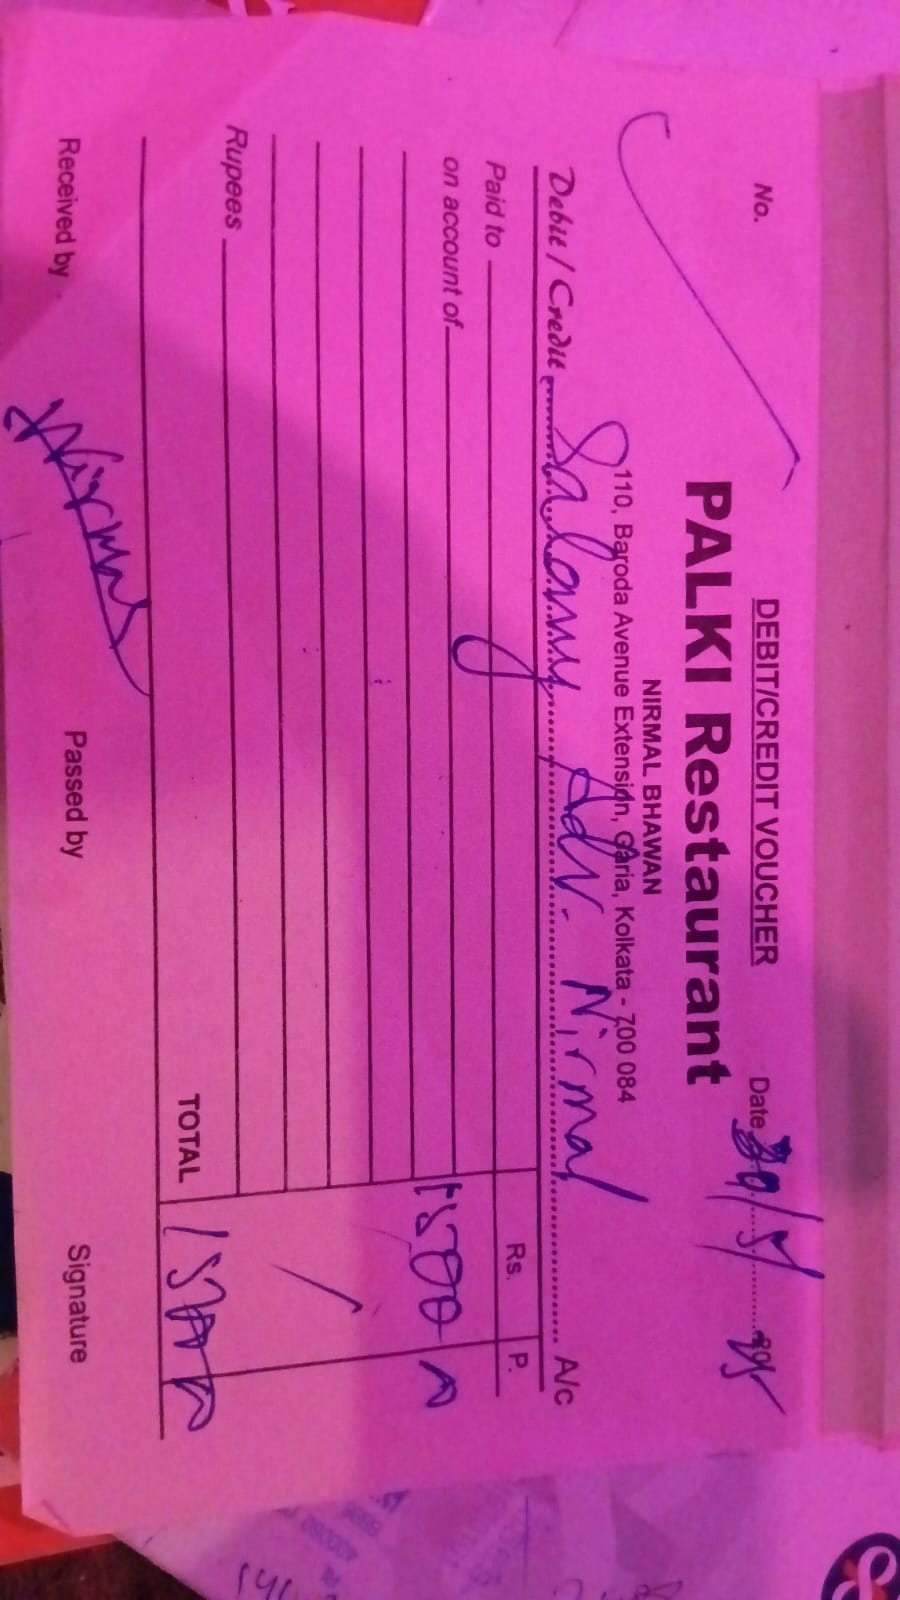 DEBIT/CREDIT VOUCHER
No.
Date 20/5/25
PALKI Restaurant
NIRMAL BHAWAN
110, Baroda Avenue Extension, Garia, Kolkata - 700 084
Debit / Credit Salary Adv. Nirmal A/c
Paid to Rs. P.
on account of 1500
Rupees
TOTAL 1500
Nirmal
Received by Passed by Signature